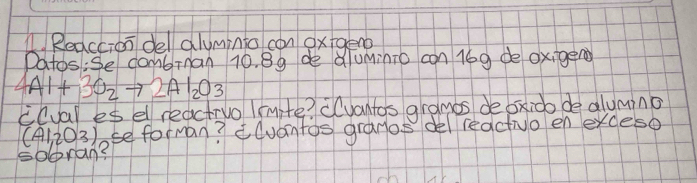 1. Reacción del aluminio con oxigeno
Datos: Se combinan 10.8g de aluminio con 16g de oxigeno
4Al + 3O2 → 2Al2O3
¿Cual es el reactivo limite? ¿Cuantos gramos de oxido de alumino
(Al2O3) se forman? ¿Cuantos gramos del reactivo en exceso
sobran?